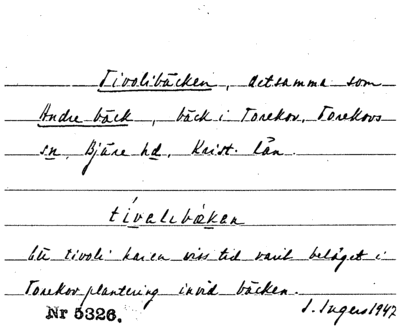 Tivolibäcken, detsamma som
Andre bäck, bäck i Torekov, Torekovs
sn, Bjäre hd, Krist. län.
tívolibækan
Ett tivoli har en viss tid varit beläget i
Torekov plantering invid bäcken.
Nr 5326. I. Ingers 1947